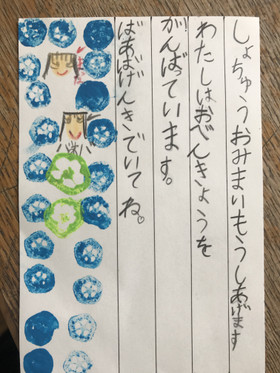 しょちゅうおみまいもうしあげます
わたしはおべんきょうを
がんばっています。
ばあばげんきでいてね♡